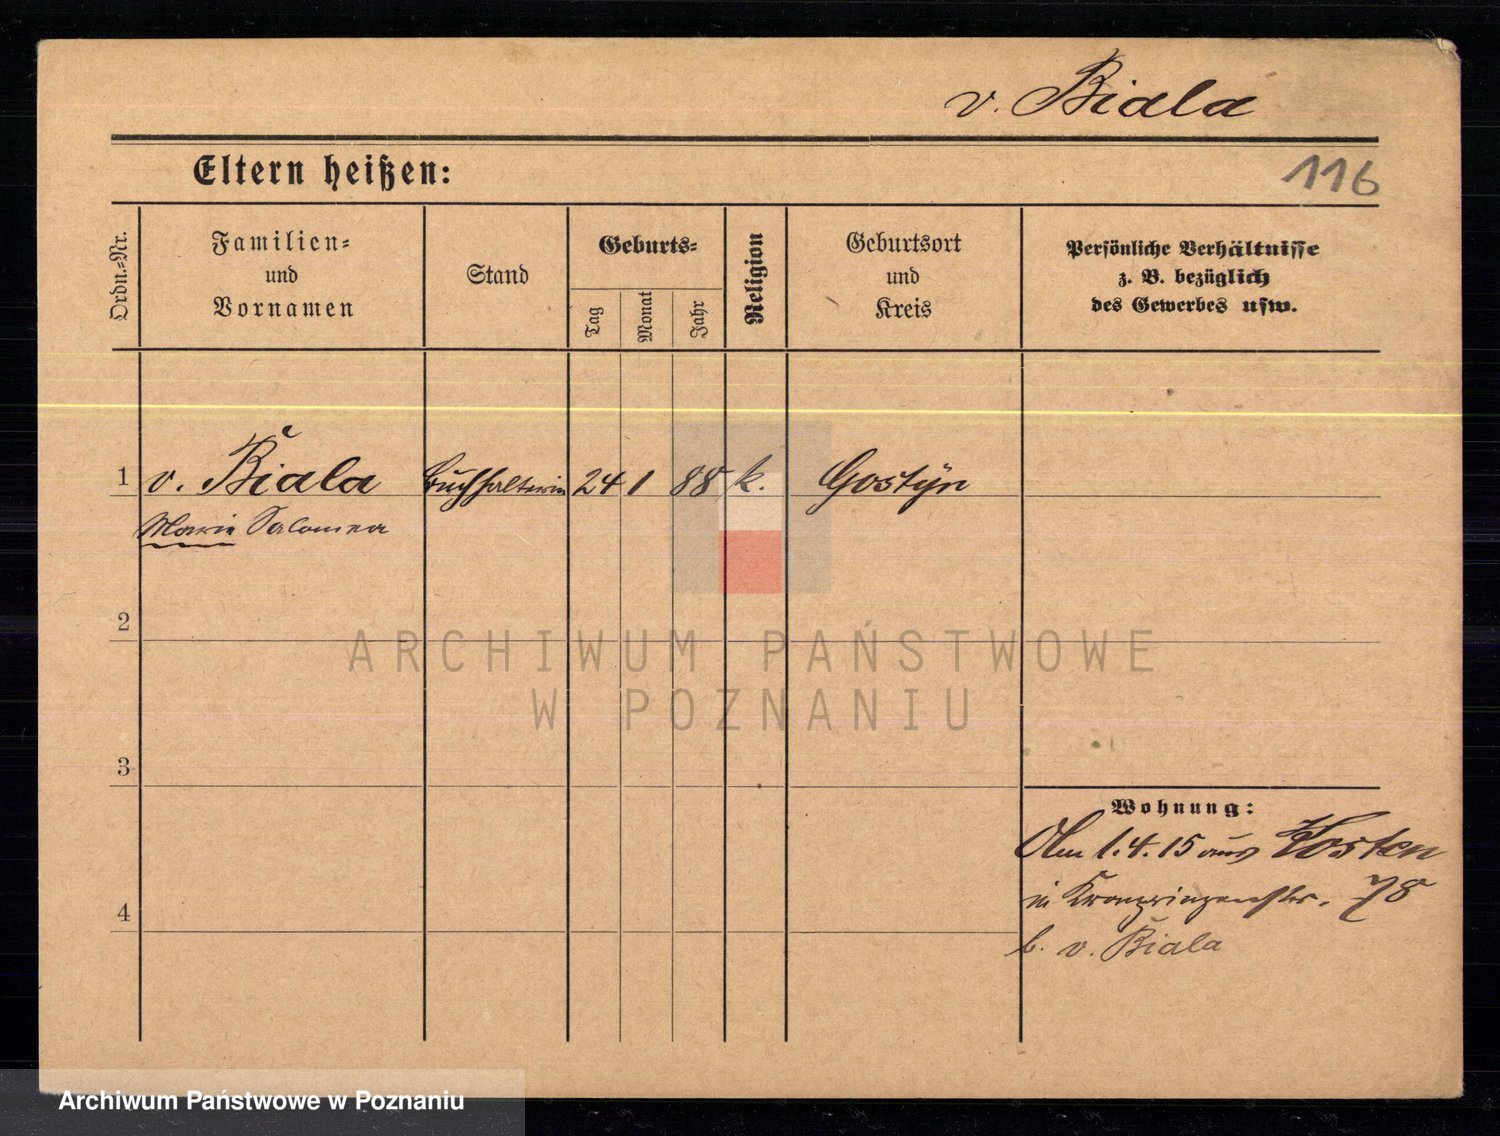 v. Biala
Eltern heißen:
116
Ordn.-Nr.
Familien-
und
Vornamen
Stand
Geburts-
Tag
Monat
Jahr
Religion
Geburtsort
und
Kreis
Persönliche Verhältnisse
z. B. bezüglich
des Gewerbes usw.
1 v. Biala Buchhalterin 24 1 88 k. Gostyn
Marie Salomea
2
ARCHIWUM PAŃSTWOWE
W POZNANIU
3
Wohnung:
Am 1.4.15 aus Kosten
in Kronprinzenstr. 78
4
b. v. Biala
Archiwum Państwowe w Poznaniu